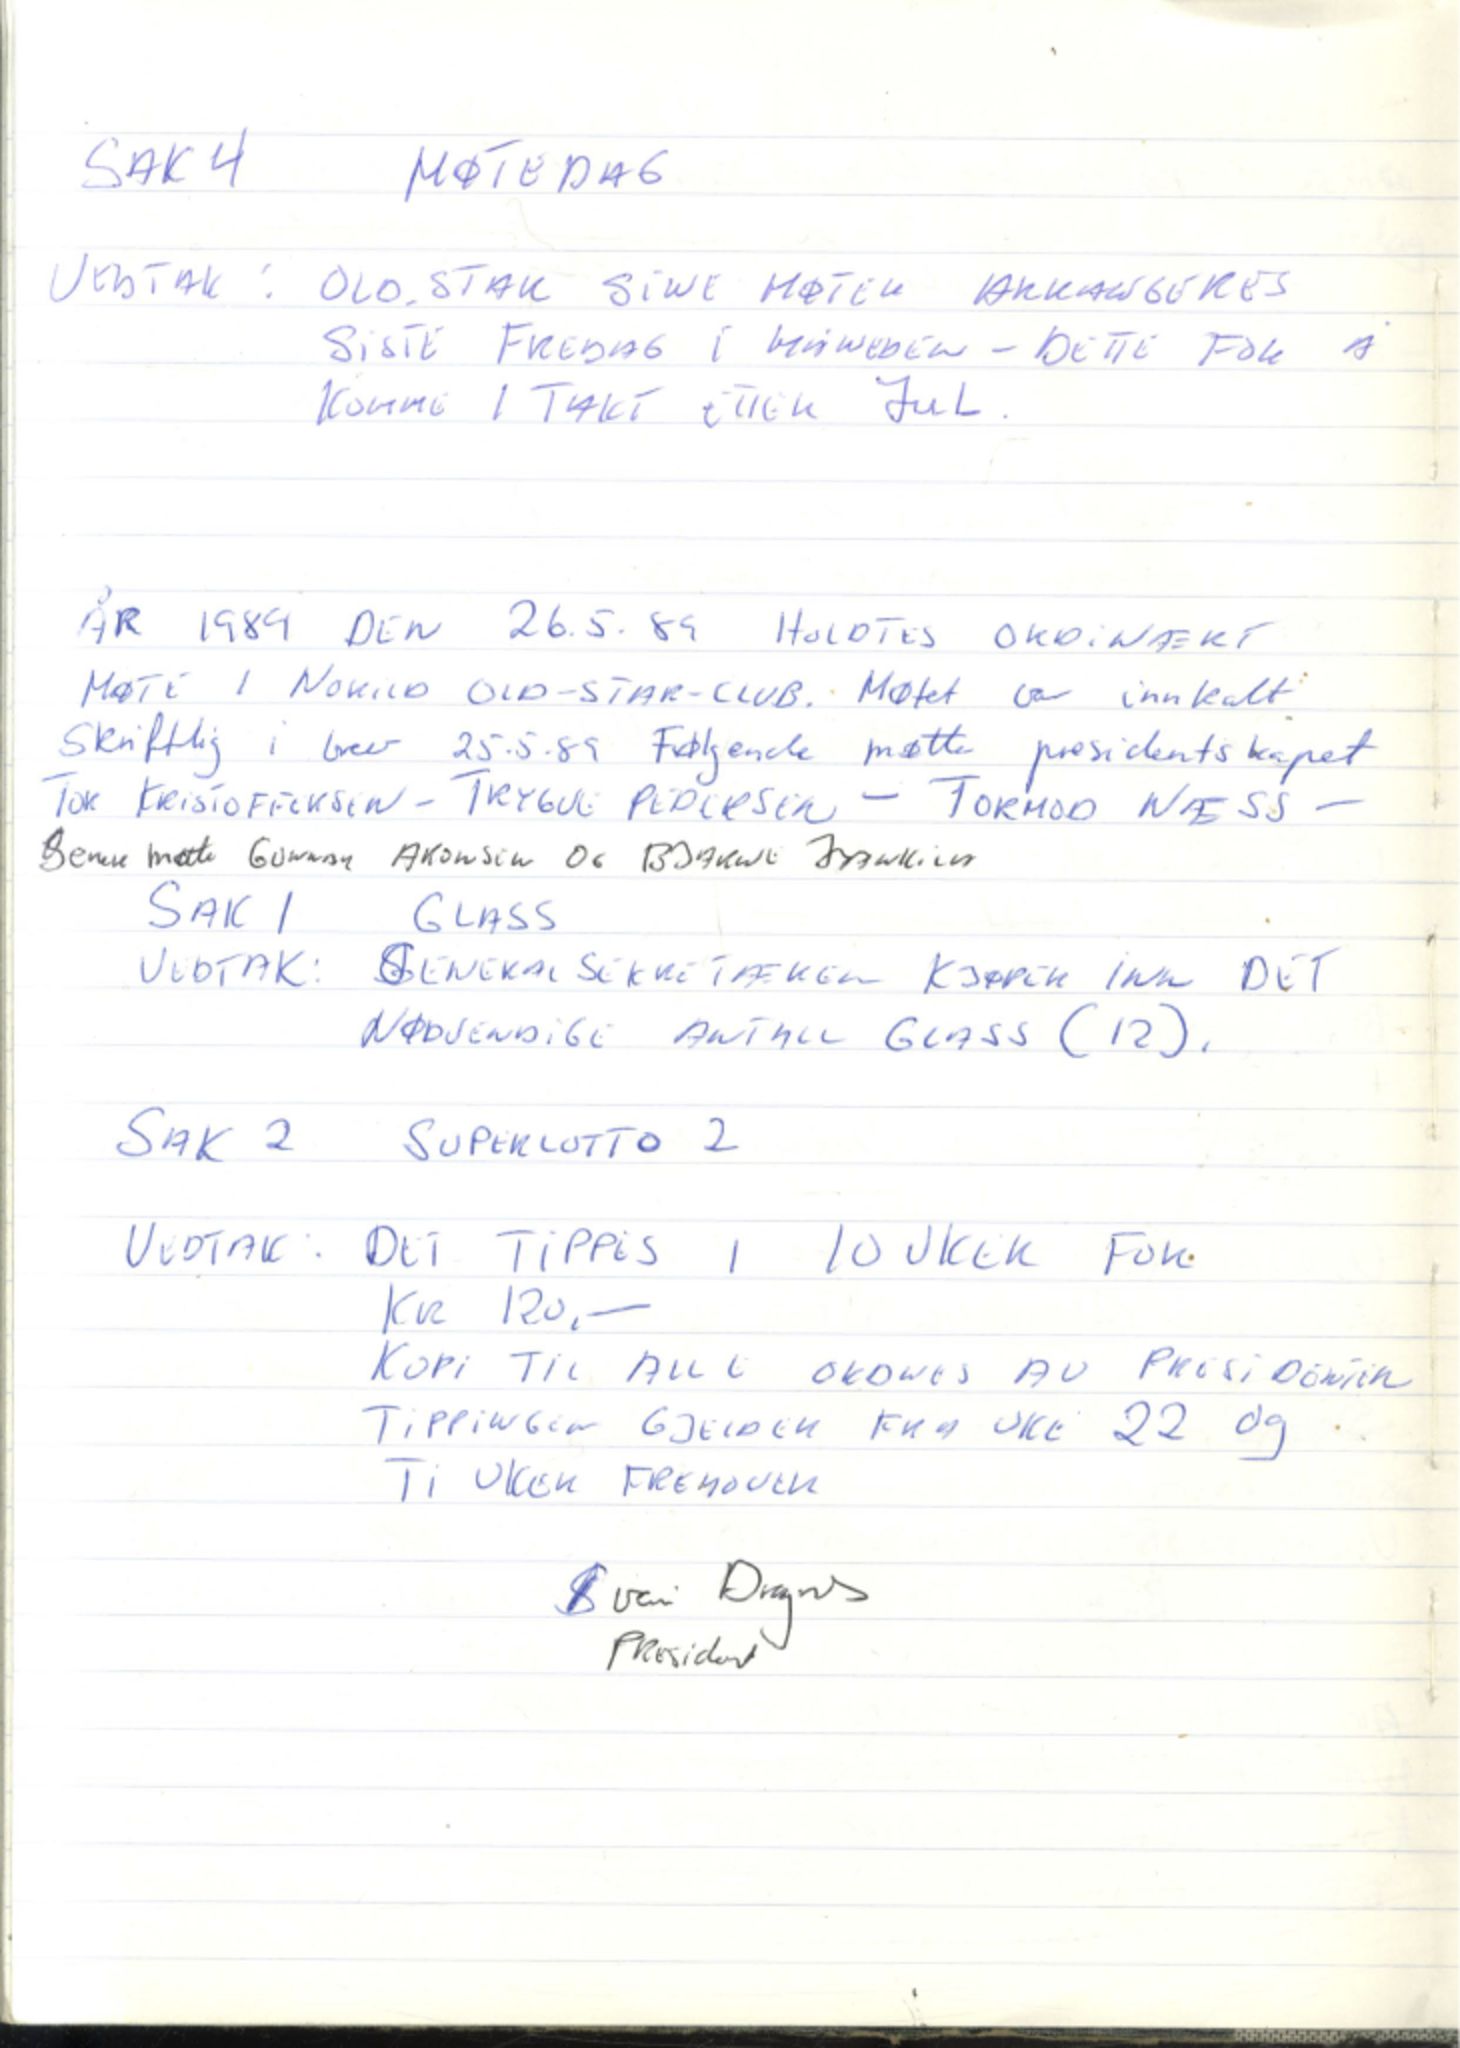 SAK 4 MØTEDAG
VEDTAK: OLD.STAR SINE MØTER ARRANGERES
SISTE FREDAG I MÅNEDEN - DETTE FOR Å
KOMME I TAKT ETTER JUL.
ÅR 1989 DEN 26.5.89 HOLDTES ORDINÆRT
MØTE I NORILD OLD-STAR-CLUB. Møtet var innkalt
skriftlig i brev 25.5.89 Følgende møtte presidentskapet
TOR KRISTOFFERSEN - TRYGVE PEDERSEN - TORMOD NÆSS -
Senere møtte GUNNAR ARONSEN OG BJARNE
SAK 1 GLASS
VEDTAK: GENERALSEKRETÆREN KJØPER INN DET
NØDVENDIGE ANTALL GLASS (12).
SAK 2 SUPERLOTTO 2
VEDTAK: DET TIPPES I 10 UKER FOR
KR 120,—
KOPI TIL ALLE ORDNES AV PRESIDENTEN
TIPPINGEN GJELDER FRA UKE 22 og
TI UKER FREMOVER
Svein
PResident